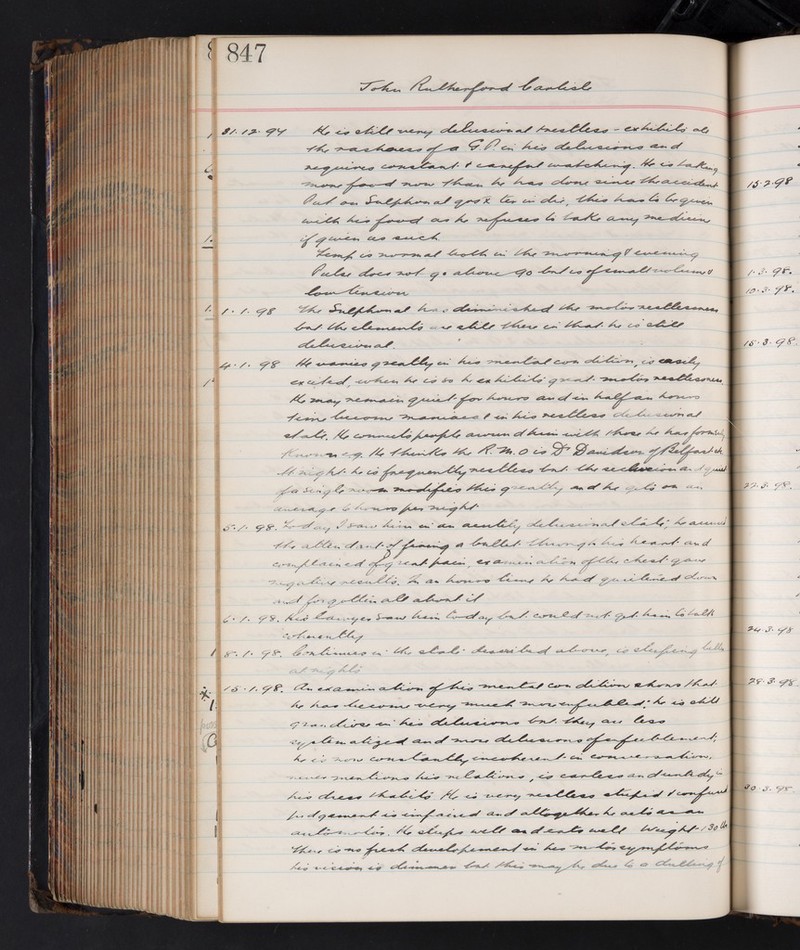 847
John Rutherford Carlisle
31.12.97 He is still very delusional & restless - exhibits all
the rashness of a G.P. in his delusions and
requires constant & careful watching. He is taking
more food now than he has done since the accident
Put on Sulphonal grs X ter in die, this has to be given
with his food as he refuses to take any medicine
if given as such
Temp is normal both in the morning & evening
Pulse does not go above 90 but is of small volume &
low tension
1.1.98 The Sulphonal has diminished the motor restlessness
but the elements are still there in that he is still
delusional.
4.1.98 He varies greatly in his mental condition, is easily
excited, when he is so he exhibits great motor restlessness,
He may remain quiet for hours and in half an hours
time become maniacal in his restless delusional
state. He connects people around him with those he has formerly
known e.g. He thinks the R.M.O is Dr Davidson of Belfast etc
At night he is frequently restless but the seclusion and quiet
of a single room modifies this greatly and he gets on an
average 6 hours per night
5.1.98. Today I saw him in an acutely delusional state; he accused
the attendant of firing a bullet through his heart and
complained of great pain, examination of the chest gave
negative results. In an hours time he had quietened down
and forgotten all about it
6.1.98. His lawyer saw him today but could not get him to talk
coherently
8.1.98. Continues in the state described above, is sleeping better
at nights
15.1.98. An examination of his mental condition shows that
he has become very much more enfeebled; he is still
grandiose in his delusions but they are less
systematized and more delusions of enfeeblement;
he is now constantly incoherent in conversation,
never mentions his relations, is careless and untidy in
his dress & habits He is very restless stupid & confused
judgement is impaired and altogether he acts as an
automaton. He sleeps well and eats well Weight 130 lbs
There is no fresh developement in his motor symptoms
his vision is dimmer but this may be due to a dulling of
15.2.98
1.3.98.
10.3.98.
15.3.98
22.3.98.
24.3.98
28.3.98
30.3.98